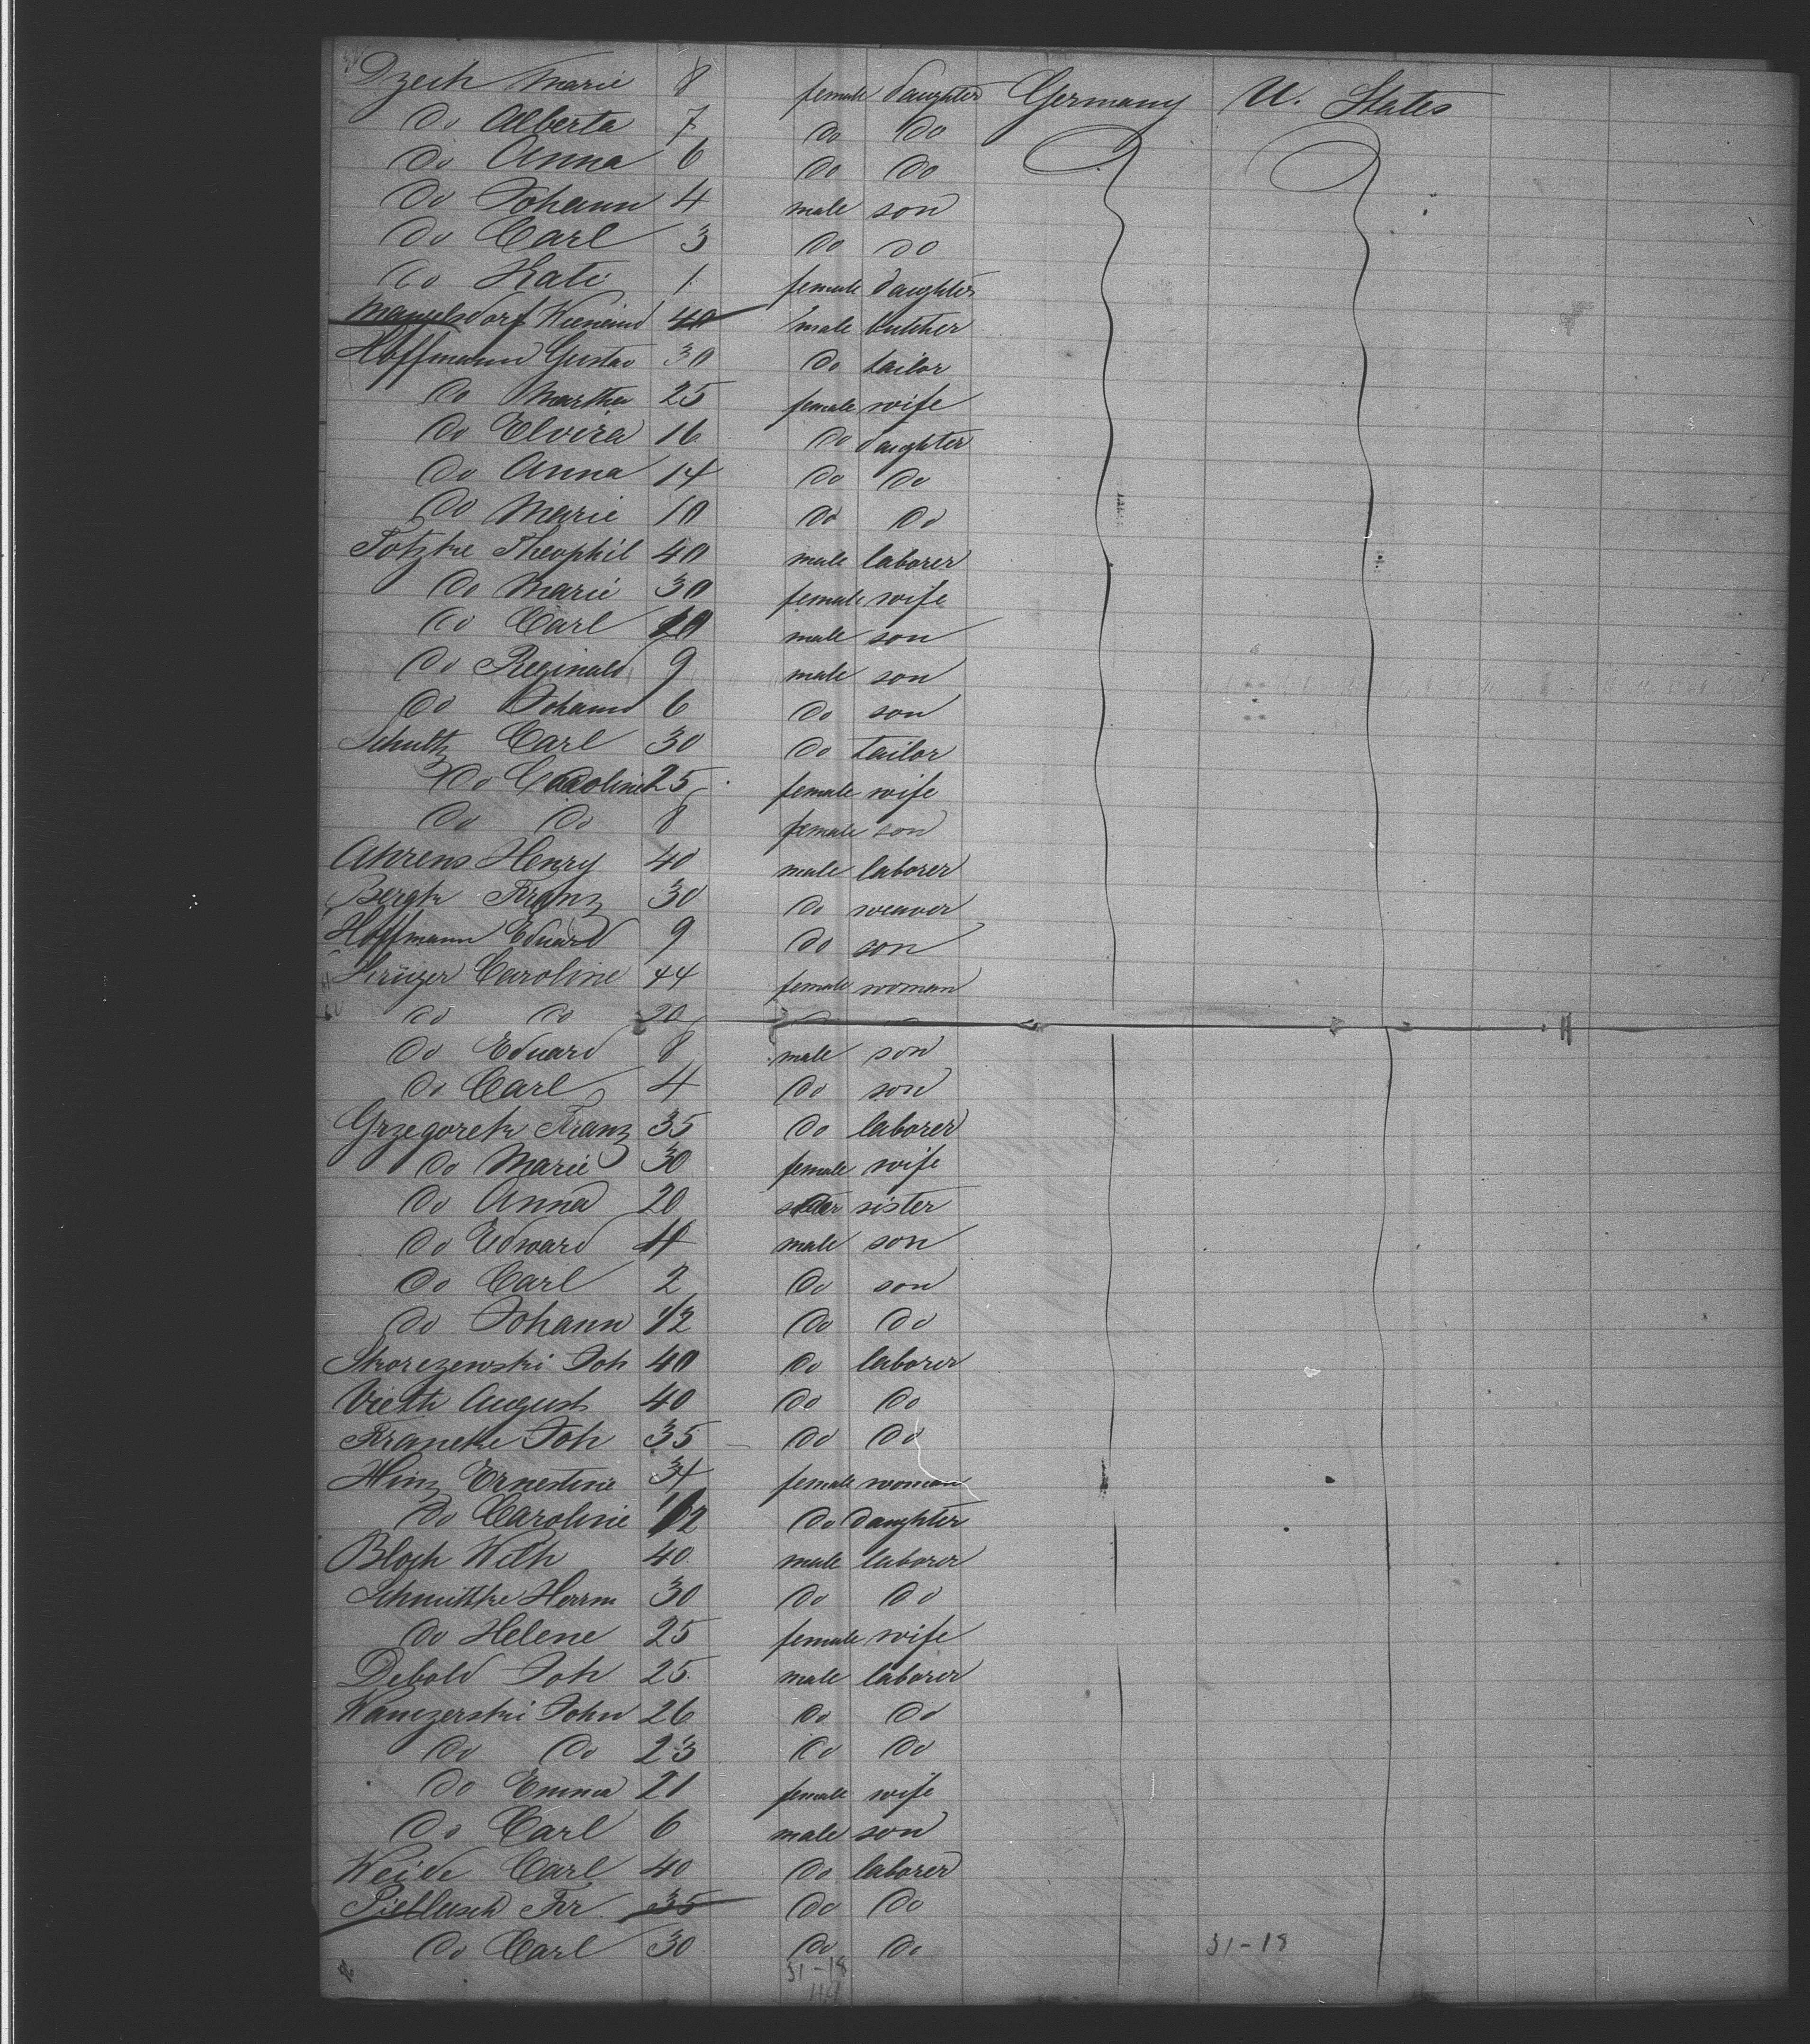 Dzech Marie 8 female daughter Germany U. States
Do Alberta 7 Do Do
Do Anna 6 Do Do
Do Johann 4 male son
Do Carl 3 Do Do
Do Kati 1 female daughter
Mangelsdorf 40 male butcher
Hoffmann Gustav 30 Do tailor
Do Martha 25 female wife
Do Elvira 16 Do daughter
Do Anna 14 Do Do
Do Marie 10 Do Do
Totzke Theophil 40 male laborer
Do Marie 30 female wife
Do Carl male son
Do Reginald 9 male son
Do Johann 6 Do son
Schultz Carl 30 Do tailor
Do Caroline 25 female wife
Do Do 8 female son
Ahrens Henry 40 male laborer
Bergk Franz 30 Do weaver
Hoffmann Eduard 9 Do son
Krüger Caroline 44 female woman
Do Do 20
Do Eduard 8 male son
Do Carl 4 Do son
Grzegorek Franz 35 Do laborer
Do Marie 30 female wife
Do Anna 20 sister
Do Edward male son
Do Carl 2 Do son
Do Johann 1/2 Do Do
Skorczewski Joh 40 Do laborer
Vieth August 40 Do Do
Francke Joh 35 Do Do
Hinz Ernestine 34 female woman
Do Caroline 1/2 Do daughter
Bloch Wilh 40 male laborer
Schmittke Herrm 30 Do Do
Do Helene 25 female wife
Debold Joh 25 male laborer
Wanczerski John 26 Do Do
Do Do 23 Do Do
Do Emma 21 female wife
Do Carl 6 male son
Weide Carl 40 Do laborer
Fr 35 Do Do
Do Carl 30 Do Do
31-18 31-18